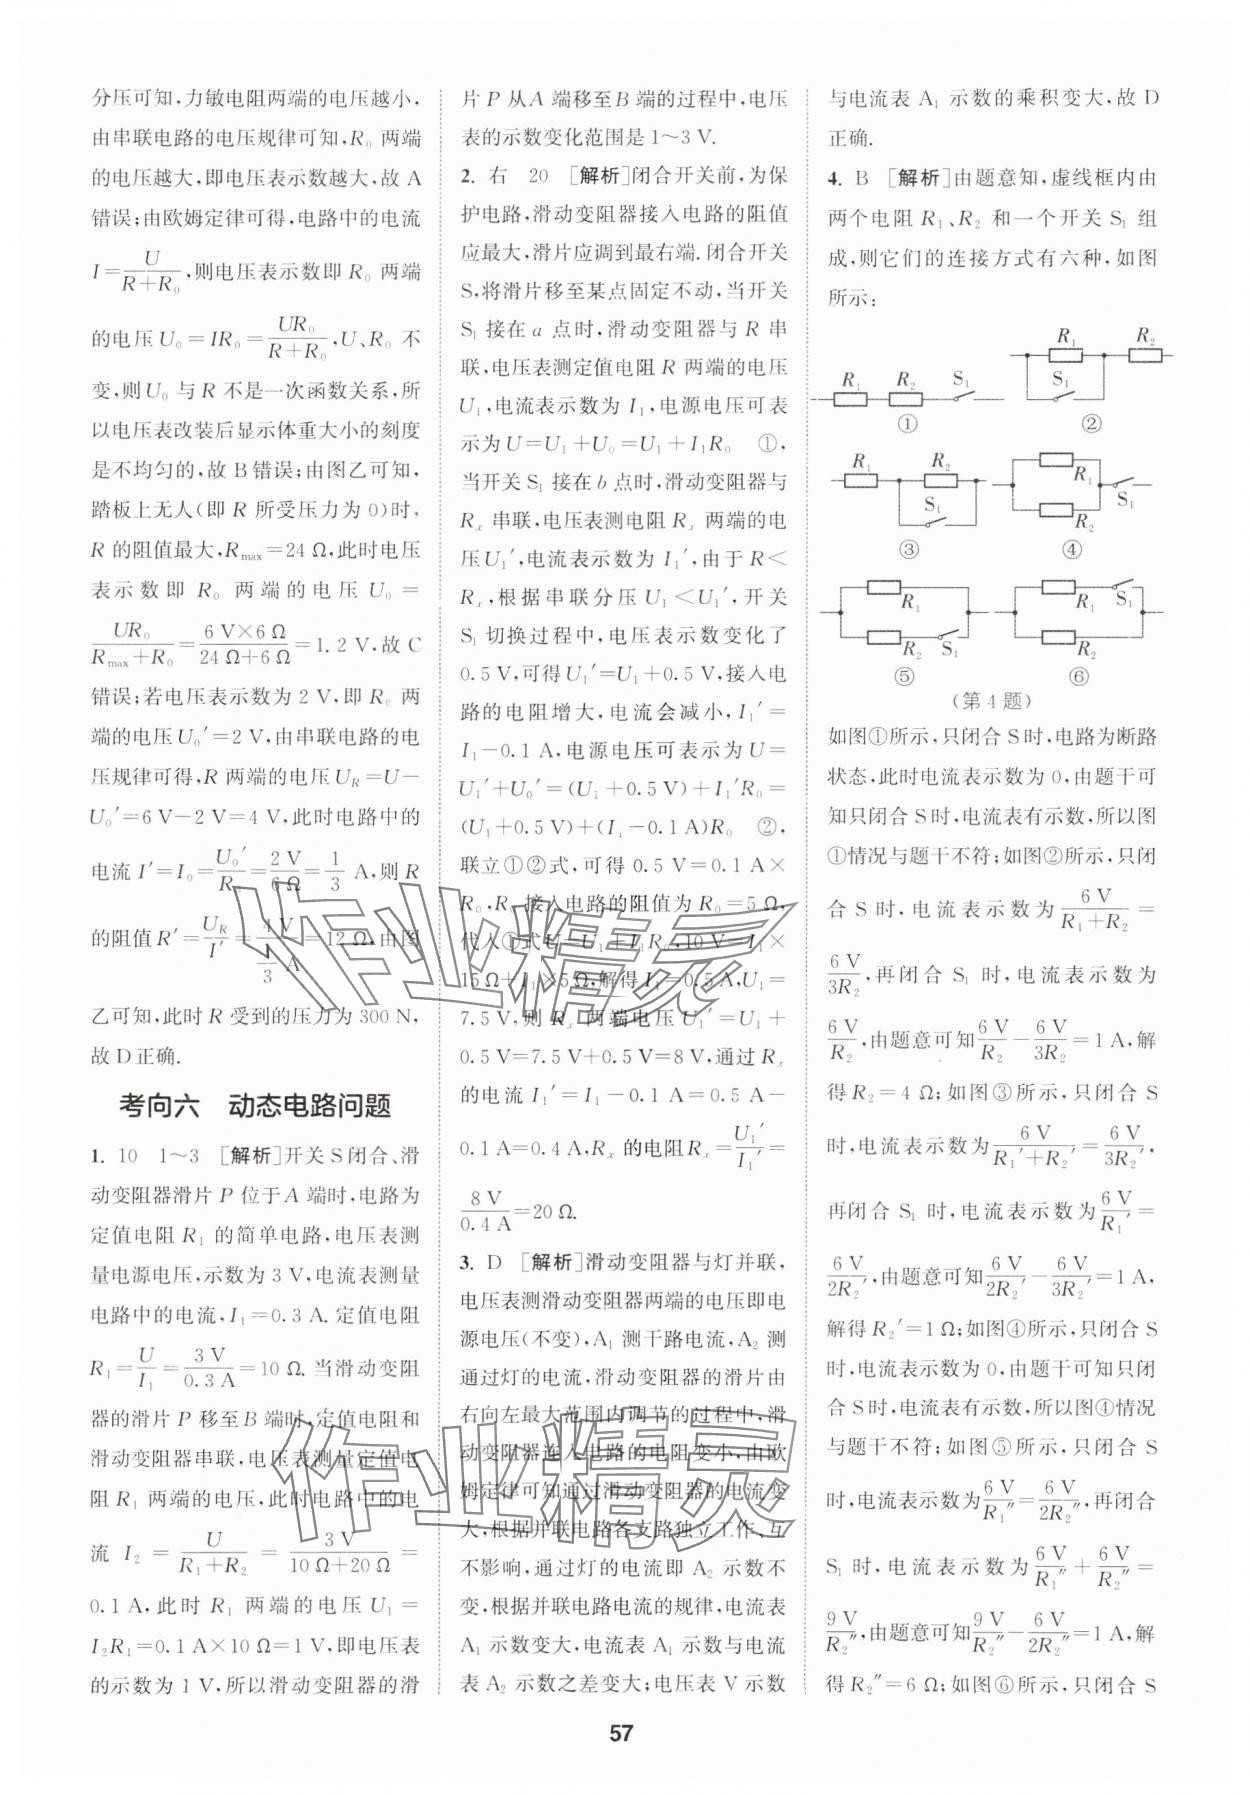 分压可知,力敏电阻两端的电压越小,
由串联电路的电压规律可知,R₀ 两端
的电压越大,即电压表示数越大,故 A
错误;由欧姆定律可得,电路中的电流
I=U/(R+R₀),则电压表示数即 R₀ 两端
的电压 U₀=IR₀=UR₀/(R+R₀),U、R₀ 不
变,则 U₀ 与 R 不是一次函数关系,所
以电压表改装后显示体重大小的刻度
是不均匀的,故 B 错误;由图乙可知,
踏板上无人(即 R 所受压力为 0)时,
R 的阻值最大,Rmax=24 Ω,此时电压
表示数即 R₀ 两端的电压 U₀=
UR₀/(Rmax+R₀)=(6 V×6 Ω)/(24 Ω+6 Ω)=1.2 V,故 C
错误;若电压表示数为 2 V,即 R₀ 两
端的电压 U₀′=2 V,由串联电路的电
压规律可得,R 两端的电压 U_R=U-
U₀′=6 V-2 V=4 V,此时电路中的
电流 I′=I₀=U₀′/R₀=2 V/6 Ω=1/3 A,则 R
的阻值 R′=U_R/I′=4 V/(1/3 A)=12 Ω,由图
乙可知,此时 R 受到的压力为 300 N,
故 D 正确.
考向六 动态电路问题
1. 10 1~3 [解析]开关 S 闭合、滑
动变阻器滑片 P 位于 A 端时,电路为
定值电阻 R₁ 的简单电路,电压表测
量电源电压,示数为 3 V,电流表测量
电路中的电流,I₁=0.3 A. 定值电阻
R₁=U/I₁=3 V/0.3 A=10 Ω. 当滑动变阻
器的滑片 P 移至 B 端时,定值电阻和
滑动变阻器串联,电压表测量定值电
阻 R₁ 两端的电压,此时电路中的电
流 I₂=U/(R₁+R₂)=3 V/(10 Ω+20 Ω)=
0.1 A,此时 R₁ 两端的电压 U₁=
I₂R₁=0.1 A×10 Ω=1 V,即电压表
的示数为 1 V,所以滑动变阻器的滑
片 P 从 A 端移至 B 端的过程中,电压
表的示数变化范围是 1~3 V.
2. 右 20 [解析]闭合开关前,为保
护电路,滑动变阻器接入电路的阻值
应最大,滑片应调到最右端. 闭合开关
S,将滑片移至某点固定不动,当开关
S₁ 接在 a 点时,滑动变阻器与 R 串
联,电压表测定值电阻 R 两端的电压
U₁,电流表示数为 I₁,电源电压可表
示为 U=U₁+U₀=U₁+I₁R₀ ①,
当开关 S₁ 接在 b 点时,滑动变阻器与
Rₓ 串联,电压表测电阻 Rₓ 两端的电
压 U₁′,电流表示数为 I₁′,由于 R<
Rₓ,根据串联分压 U₁<U₁′,开关
S₁ 切换过程中,电压表示数变化了
0.5 V,可得 U₁′=U₁+0.5 V,接入电
路的电阻增大,电流会减小,I₁′=
I₁-0.1 A,电源电压可表示为 U=
U₁′+U₀′=(U₁+0.5 V)+I₁′R₀=
(U₁+0.5 V)+(I₁-0.1 A)R₀ ②,
联立①②式,可得 0.5 V=0.1 A×
R₀,R₀ 接入电路的阻值为 R₀=5 Ω,
代入①式 U=U₁+I₁R₀,10 V=I₁×
15 Ω+I₁×5 Ω,解得 I₁=0.5 A,U₁=
7.5 V,则 Rₓ 两端电压 U₁′=U₁+
0.5 V=7.5 V+0.5 V=8 V,通过 Rₓ
的电流 I₁′=I₁-0.1 A=0.5 A-
0.1 A=0.4 A,Rₓ 的电阻 Rₓ=U₁′/I₁′=
8 V/0.4 A=20 Ω.
3. D [解析]滑动变阻器与灯并联,
电压表测滑动变阻器两端的电压即电
源电压(不变),A₁ 测干路电流,A₂ 测
通过灯的电流,滑动变阻器的滑片由
右向左最大范围内调节的过程中,滑
动变阻器连入电路的电阻变小,由欧
姆定律可知通过滑动变阻器的电流变
大,根据并联电路各支路独立工作、互
不影响,通过灯的电流即 A₂ 示数不
变,根据并联电路电流的规律,电流表
A₁ 示数变大,电流表 A₁ 示数与电流
表 A₂ 示数之差变大;电压表 V 示数
与电流表 A₁ 示数的乘积变大,故 D
正确.
4. B [解析]由题意知,虚线框内由
两个电阻 R₁、R₂ 和一个开关 S₁ 组
成,则它们的连接方式有六种,如图
所示:
R₁ R₂ S₁
①
R₁ R₂ S₁
②
R₁ R₂ S₁
③
R₁ S₁ R₂
④
R₁ R₂ S₁
⑤
R₁ S₁ R₂
⑥
(第 4 题)
如图①所示,只闭合 S 时,电路为断路
状态,此时电流表示数为 0,由题干可
知只闭合 S 时,电流表有示数,所以图
①情况与题干不符;如图②所示,只闭
合 S 时,电流表示数为 6 V/(R₁+R₂)=
6 V/3R₂,再闭合 S₁ 时,电流表示数为
6 V/R₂,由题意可知 6 V/R₂-6 V/3R₂=1 A,解
得 R₂=4 Ω;如图③所示,只闭合 S
时,电流表示数为 6 V/(R₁′+R₂′)=6 V/3R₂′,
再闭合 S₁ 时,电流表示数为 6 V/R₁′=
6 V/2R₂′,由题意可知 6 V/2R₂′-6 V/3R₂′=1 A,
解得 R₂′=1 Ω;如图④所示,只闭合 S
时,电流表示数为 0,由题干可知只闭
合 S 时,电流表有示数,所以图④情况
与题干不符;如图⑤所示,只闭合 S
时,电流表示数为 6 V/R₁″=6 V/2R₂″,再闭合
S₁ 时,电流表示数为 6 V/R₁″+6 V/R₂″=
9 V/R₂″,由题意可知 9 V/R₂″-6 V/2R₂″=1 A,解
得 R₂″=6 Ω;如图⑥所示,只闭合 S
57
作业精灵
作业精灵